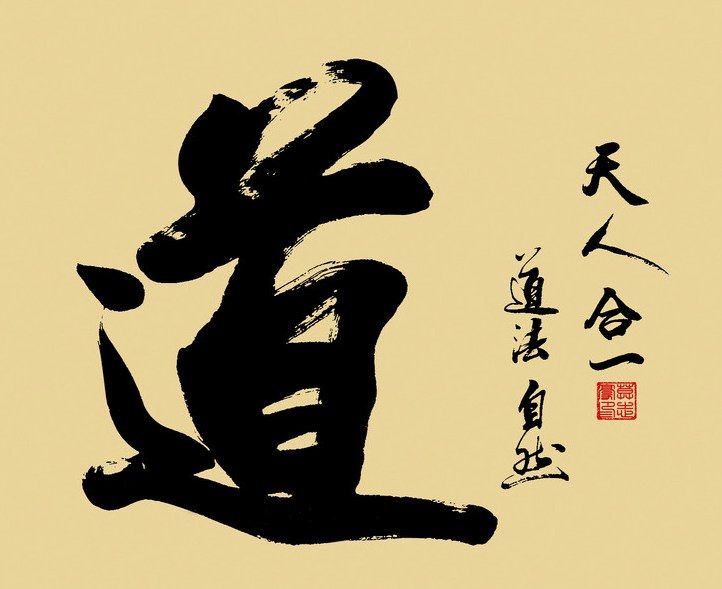 道
天人合一
道法自然